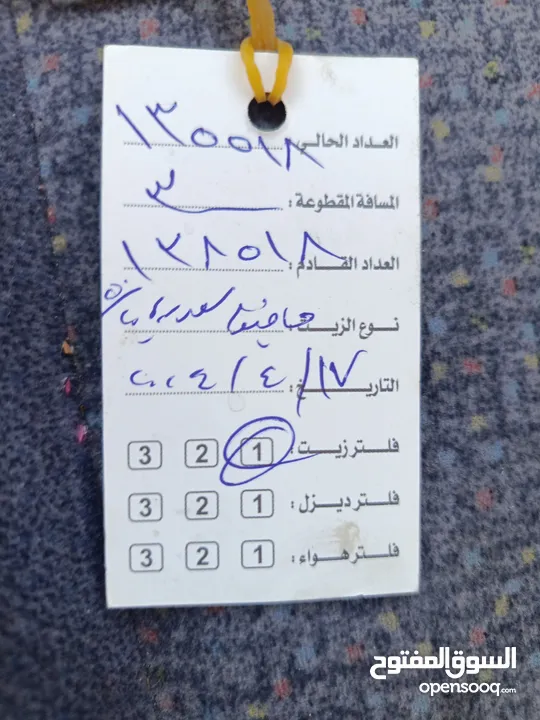 العداد الحالي: ١٣٥٥١٨
المسافة المقطوعة: ٣
العداد القادم: ١٣٨٥١٨
نوع الزيت:
التاريخ: ١٧/٤/٢٠٢٤
فلتر زيت: 1 2 3
فلتر ديزل: 1 2 3
فلتر هواء: 1 2 3
السوق المفتوح
opensooq.com